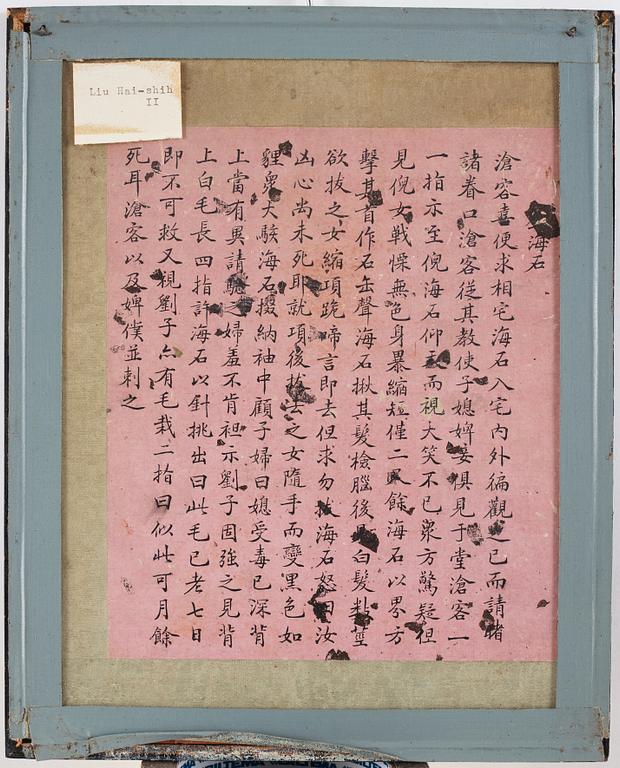 Liu Hai-shih
II
海石
滄客喜便求相宅海石入宅內外徧觀之已而請睹
諸眷口滄客從其教使子媳婢妾俱見于堂滄客一
一指示至倪海石仰天而視大笑不已衆方驚疑但
見倪女戰慄無色身暴縮短僅二尺餘海石以界方
擊其首作石缶聲海石揪其髮檢腦後見白髮數莖
欲拔之女縮項跪啼言即去但求勿拔海石怒曰汝
凶心尚未死耶就項後拔去之女隨手而變黑色如
貍衆大駭海石掇納袖中顧子婦曰媳受毒已深背
上當有異請驗之婦羞不肯袒示劉子固強之見背
上白毛長四指許海石以針挑出曰此毛已老七日
即不可救又視劉子亦有毛裁二指曰似此可月餘
死耳滄客以及婢僕並刺之